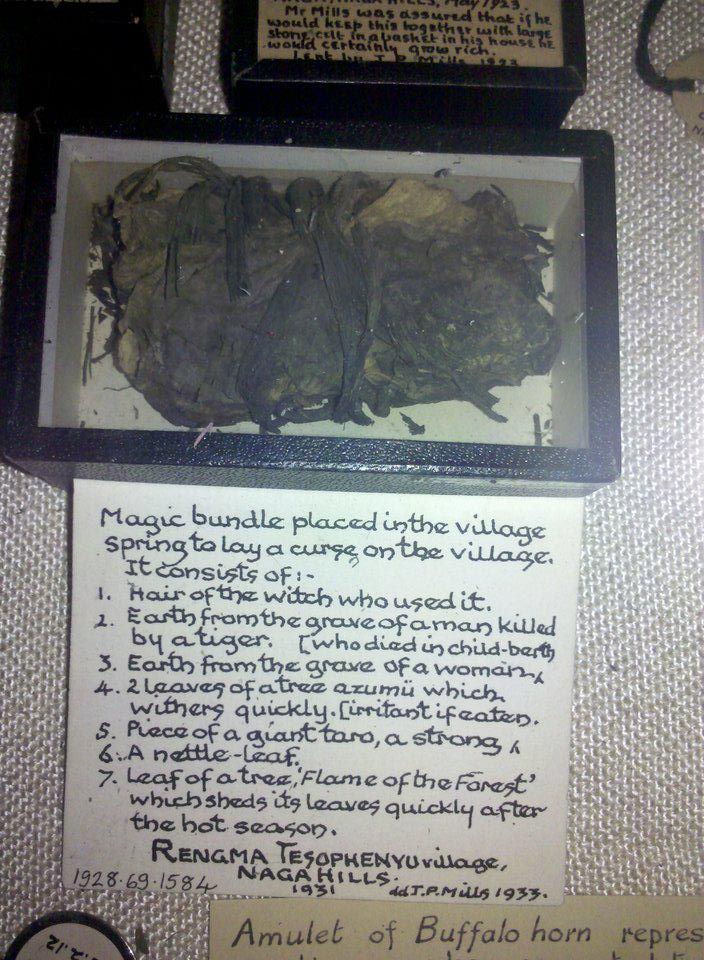 HILLS, May 1923.
Mr Mills was assured that if he
would keep this together with large
stone celt in a basket in his house he
would certainly grow rich.
Lent by J.P. Mills 1923
Magic bundle placed in the village
spring to lay a curse on the village.
It consists of:-
1. Hair of the witch who used it.
2. Earth from the grave of a man killed
by a tiger. [who died in child-berth
3. Earth from the grave of a woman,⁁
4. 2 leaves of a tree azumü which
withers quickly. [irritant if eaten.
5. Piece of a giant taro, a strong ⁁
6. A nettle-leaf.
7. Leaf of a tree, 'Flame of the Forest'
which sheds its leaves quickly after
the hot season.
RENGMA TESOPHENYU village,
NAGA HILLS.
1931
1928.69.1584
dd J.P. Mills 1933.
2.12
Amulet of Buffalo horn repres